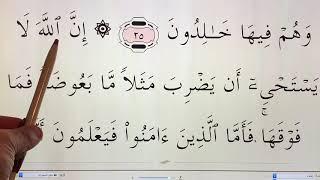 وَهُمْ فِيهَا خَـٰلِدُونَ ٢٥ ۞ إِنَّ ٱللَّهَ لَا
يَسْتَحْىِۦٓ أَن يَضْرِبَ مَثَلًا مَّا بَعُوضَةً فَمَا
فَوْقَهَا ۚ فَأَمَّا ٱلَّذِينَ ءَامَنُوا۟ فَيَعْلَمُونَ